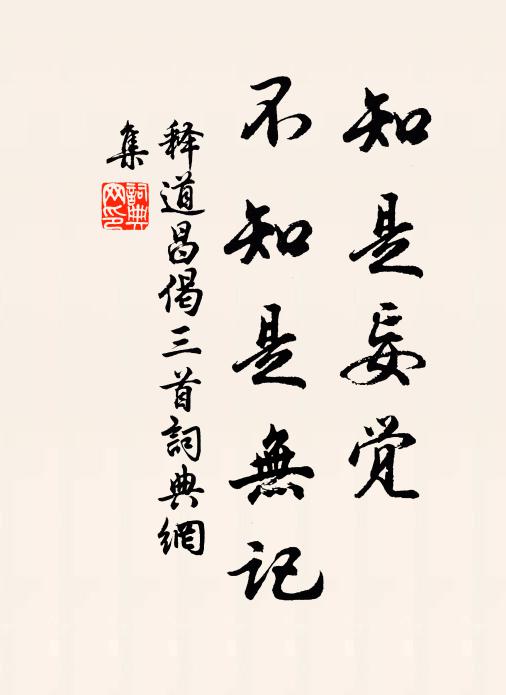 知是妄觉
不知是無記
释道昌偈三首詞典網
集
詞典網印